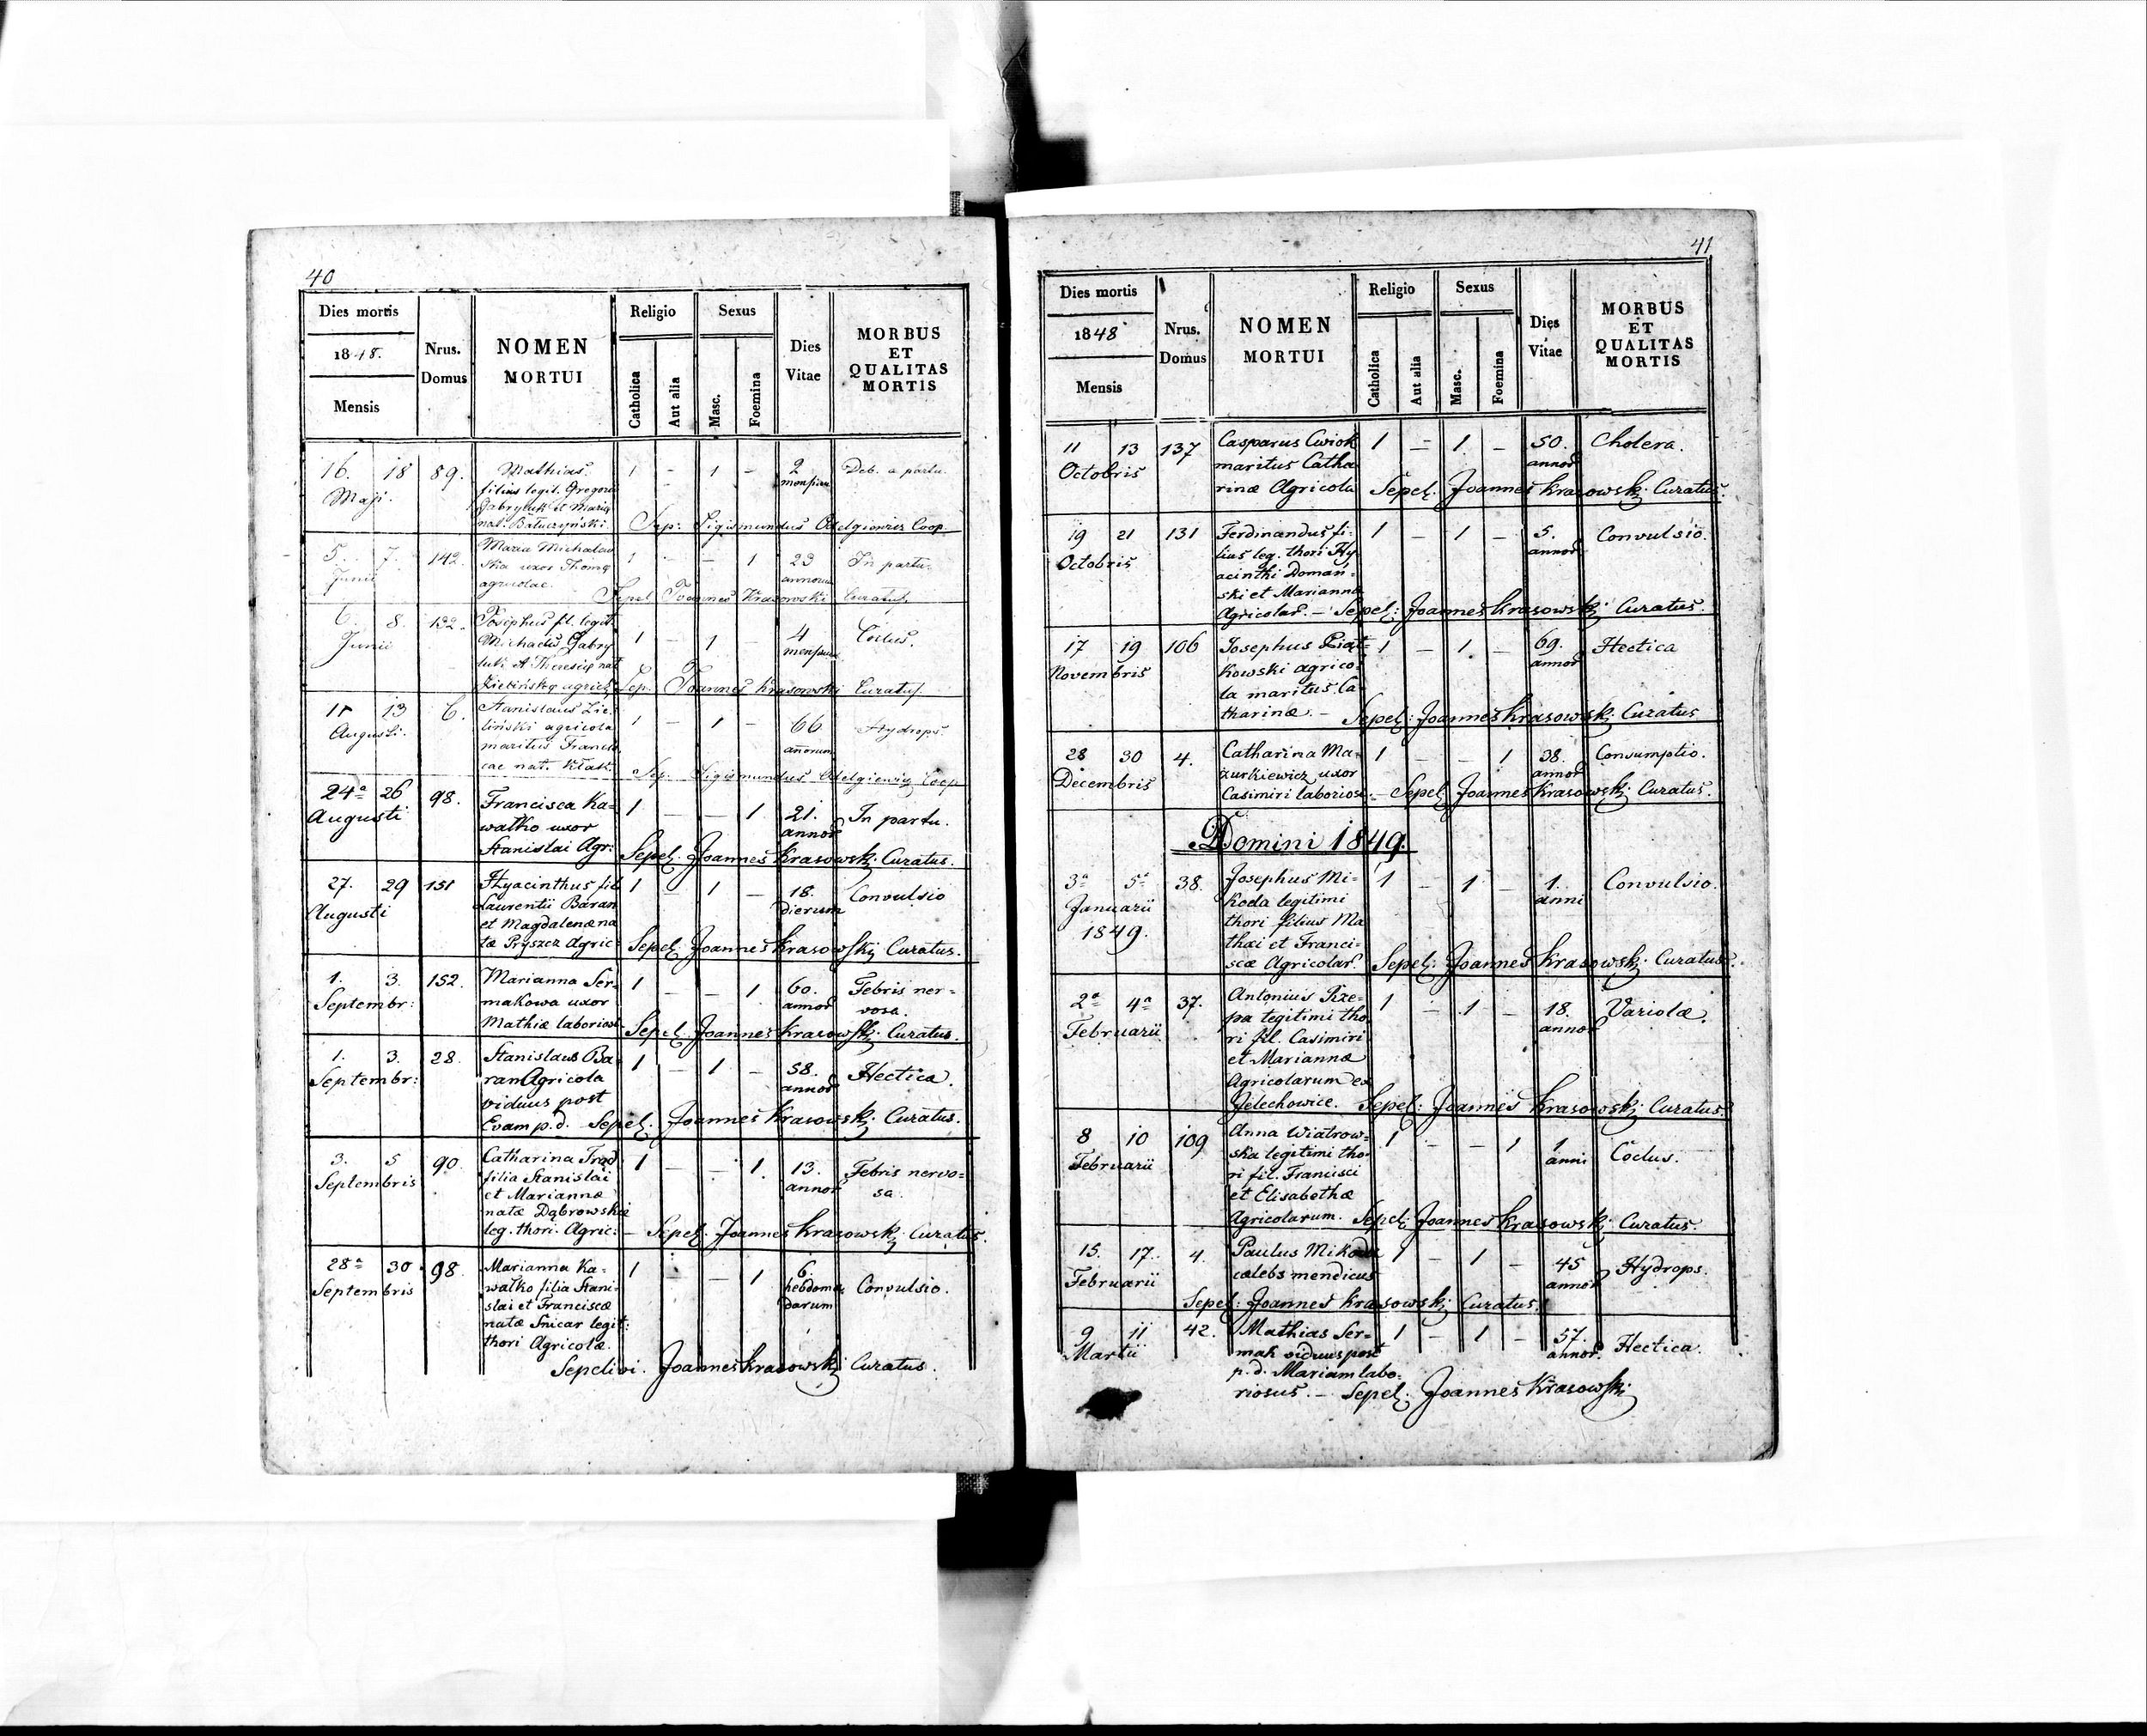 40
Dies mortis
Nrus. Domus
NOMEN MORTUI
Religio
Sexus
Dies Vitae
MORBUS ET QUALITAS MORTIS
1848.
Mensis
Catholica
Aut alia
Masc.
Foemina
16. 18 89. Mathias 1 – 1 – 2 Deb. a partu.
Maji. filius legit. Gregorii mensium
Gabryluk et Maria
nat. Batuczyński. Sep: Sigismundus Odelgiewicz Coop.
5. 7. 142. Maria Michalow 1 – – 1 23 In partu.
Junii ska uxor Thomę annorum
agricolae. Sepel Joannes Krasowski Curatus.
6. 8. 132. Josephus fil. legit. 1 – 1 – 4
Junii Michaelis Gabry mensium
luk et Theresię nat
Zielińskę agricol. Sep. Joannes Krasowski Curatus.
11 13 6. Stanislaus Zie- 1 – 1 – 66 Hydrops.
Augusti. liński agricola annorum
maritus Francis
cae nat. Kłak. Sep. Sigismundus Odelgiewicz Coop
24ª 26 98. Francisca Ka= 1 – – 1 21. In partu.
Augusti wałko uxor annor
Stanislai Agr: Sepel. Joannes Krasowski Curatus.
27. 29 151 Hyacinthus fil 1 – 1 – 18. Convulsio
Augusti Laurentii Baran dierum
et Magdalenæ na
tæ Pryszcz Agric: Sepel. Joannes Krasowski Curatus.
1. 3. 152. Marianna Ser- 1 – – 1 60. Febris ner=
Septembr: makowa uxor annor vosa.
Mathiæ laborios Sepel. Joannes Krasowski Curatus.
1. 3. 28. Stanislaus Ba- 1 – 1 – 58. Hectica.
Septembr: ran Agricola annor
viduus post
Evam p.d. – Sepel. Joannes Krasowski Curatus.
3. 5 90. Catharina Trąd 1 – – 1. 13. Febris nervo=
Septembris filia Stanislai annor sa.
et Mariannæ
natæ Dąbrowskie
leg. thori. Agric: – Sepel. Joannes Krasowski Curatus.
28ª 30 98. Marianna Ka= 1 – – 1 6. Convulsio.
Septembris wałko filia Stani- hebdoma
slai et Franciscæ darum
natæ Snicar legit:
thori Agricolæ.
Sepelivi. Joannes Krasowski Curatus.
41
Dies mortis
Nrus. Domus
NOMEN MORTUI
Religio
Sexus
Dies Vitae
MORBUS ET QUALITAS MORTIS
1848
Mensis
Catholica
Aut alia
Masc.
Foemina
11 13 137 Casparus Cwiok 1 – 1. – 50. Cholera.
Octobris maritus Catha annor
rinæ Agricola Sepel. Joannes Krasowski Curatus.
19 21 131 Ferdinandus fi- 1 – 1 – 5. Convulsio.
Octobris lius leg. thori Hy annor
acinthi Doman=
ski et Marianna
Agricolar. – Sepel: Joannes Krasowski Curatus.
17 19 106 Josephus Piąt= 1 – 1. – 69. Hectica
Novembris kowski agrico- annor
la maritus Ca-
tharinæ. – Sepel: Joannes Krasowski Curatus
28 30 4. Catharina Ma- 1 – – 1 38. Consumptio.
Decembris zurkiewicz uxor annor
Casimiri laboriosi – Sepel: Joannes Krasowski Curatus.
Domini 1849.
3ª 5ª 38. Josephus Mi- 1 – 1 – 1. Convulsio.
Januarii koda legitimi anni
1849. thori filius Ma
thæi et Franci=
scæ Agricolar. Sepel: Joannes Krasowski Curatus.
2ª 4ª 37. Antonius Rze- 1 – 1 – 18. Variolæ.
Februarii pa legitimi tho annor
ri fil. Casimiri
et Mariannæ
Agricolarum ex
Jelechowice. Sepel: Joannes Krasowski Curatus.
8 10 109 Anna Wiatrow= 1 – – 1 1 Coclus.
Februarii ska legitimi tho- anni
ri fil. Francisci
et Elisabethæ
Agricolarum. Sepel: Joannes Krasowski Curatus.
15. 17. 4. Paulus Mikoda 1 – 1 – 45 Hydrops.
Februarii cælebs mendicus annor
Sepel: Joannes Krasowski Curatus.
9 11 42. Mathias Ser= 1 – 1 – 57. Hectica.
Martii mak viduus post annor.
p.d. Mariam labo-
riosus. – Sepel. Joannes Krasowski